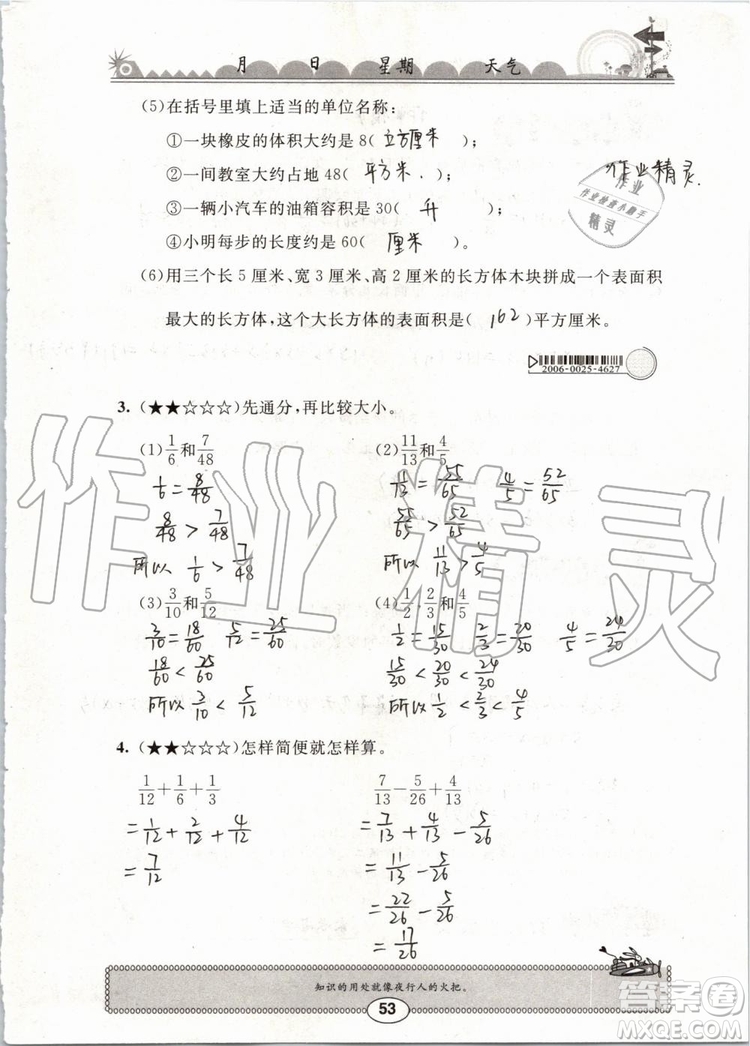 月 日 星期 天气
(5)在括号里填上适当的单位名称:
①一块橡皮的体积大约是 8( 立方厘米 );
②一间教室大约占地 48( 平方米 . );
③一辆小汽车的油箱容积是 30( 升 );
④小明每步的长度约是 60( 厘米 )。
作业精灵.
作业
作业检查小助手
精灵
(6)用三个长 5 厘米、宽 3 厘米、高 2 厘米的长方体木块拼成一个表面积
最大的长方体,这个大长方体的表面积是( 162 )平方厘米。
2006-0025-4627
3. (★★☆☆☆)先通分,再比较大小。
(1) 1/6 和 7/48 (2) 11/13 和 4/5
1/6 = 8/48 11/13 = 55/65 4/5 = 52/65
8/48 > 7/48 55/65 > 52/65
所以 1/6 > 7/48 所以 11/13 > 4/5
(3) 3/10 和 5/12 (4) 1/2、2/3 和 4/5
3/10 = 18/60 5/12 = 25/60 1/2 = 15/30 2/3 = 20/30 4/5 = 24/30
18/60 < 25/60 15/30 < 20/30 < 24/30
所以 3/10 < 5/12 所以 1/2 < 2/3 < 4/5
4. (★★☆☆☆)怎样简便就怎样算。
1/12 + 1/6 + 1/3 7/13 - 5/26 + 4/13
= 1/12 + 2/12 + 4/12 = 7/13 + 4/13 - 5/26
= 7/12 = 11/13 - 5/26
= 22/26 - 5/26
= 17/26
作业精灵
知识的用处就像夜行人的火把。
53
答案圈
MXQE.COM